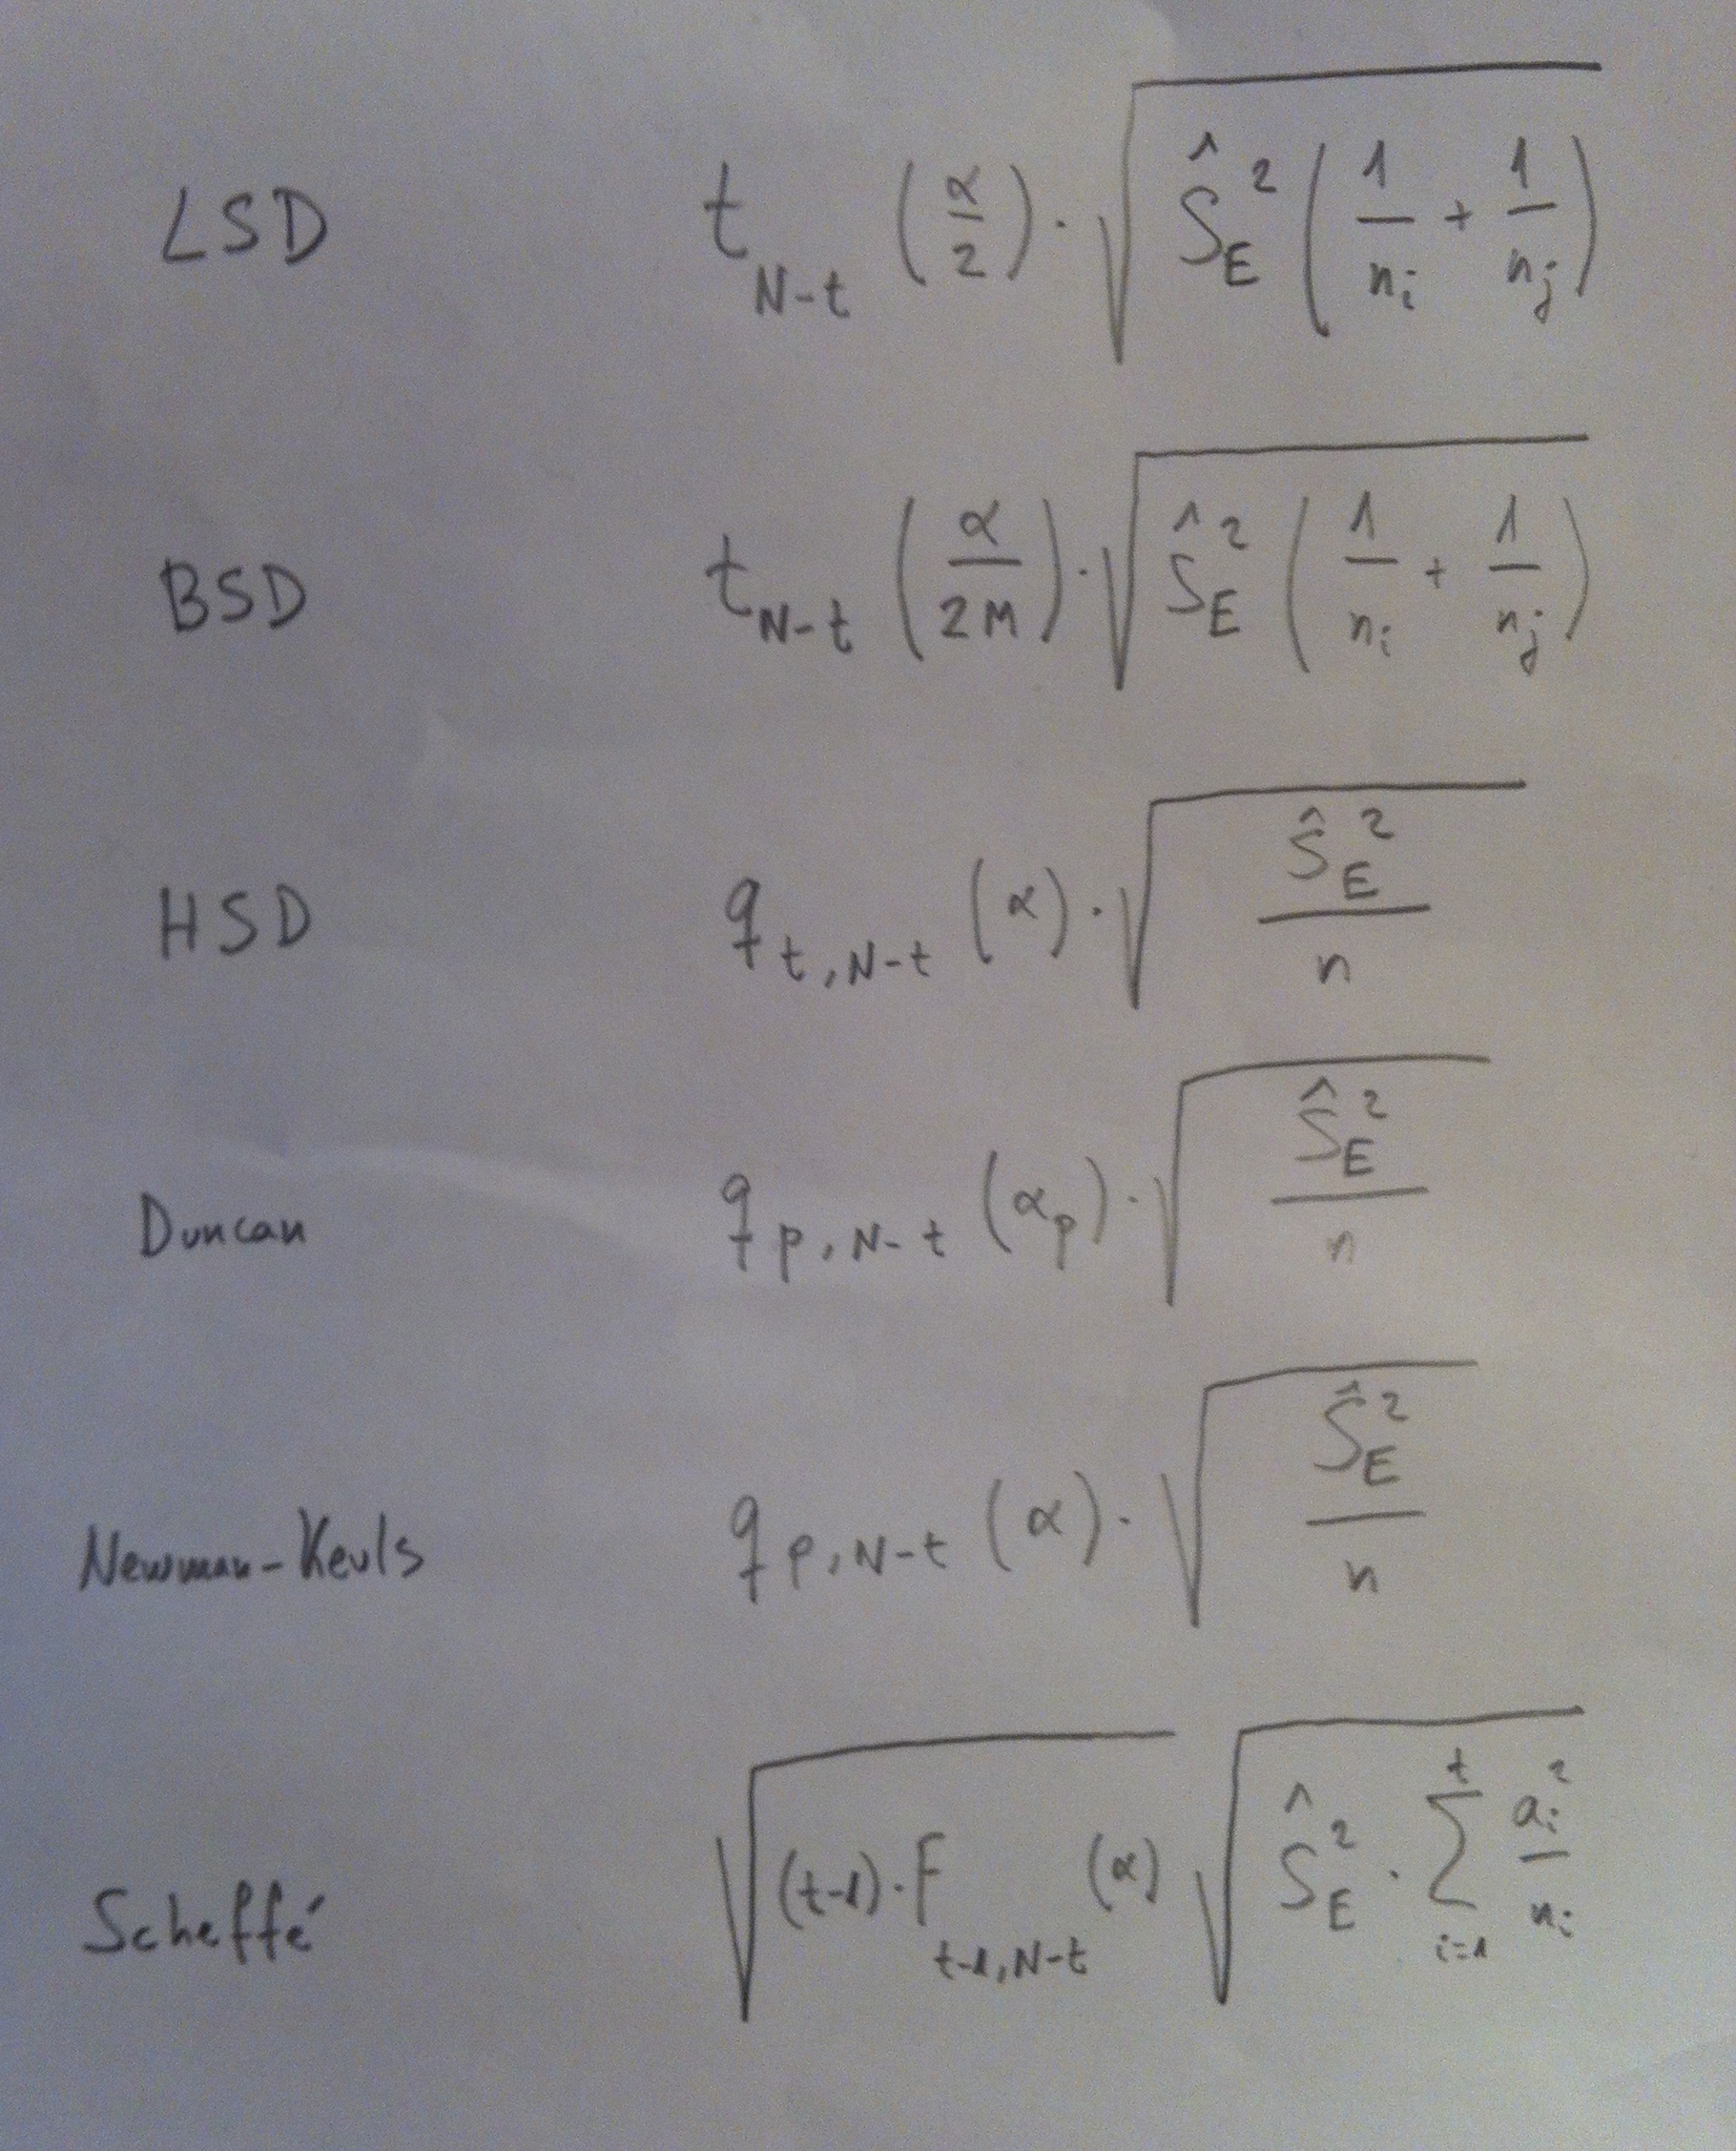 LSD t_{N-t} (α/2) · √(Ŝ_E² (1/n_i + 1/n_j))
BSD t_{N-t} (α/2M) · √(Ŝ_E² (1/n_i + 1/n_j))
HSD q_{t,N-t} (α) · √(Ŝ_E²/n)
Duncan q_{p,N-t} (α_p) · √(Ŝ_E²/n)
Newman-Keuls q_{p,N-t} (α) · √(Ŝ_E²/n)
Scheffé √((t-1) · F_{t-1,N-t} (α)) √(Ŝ_E² · ∑_{i=1}^{t} a_i²/n_i)